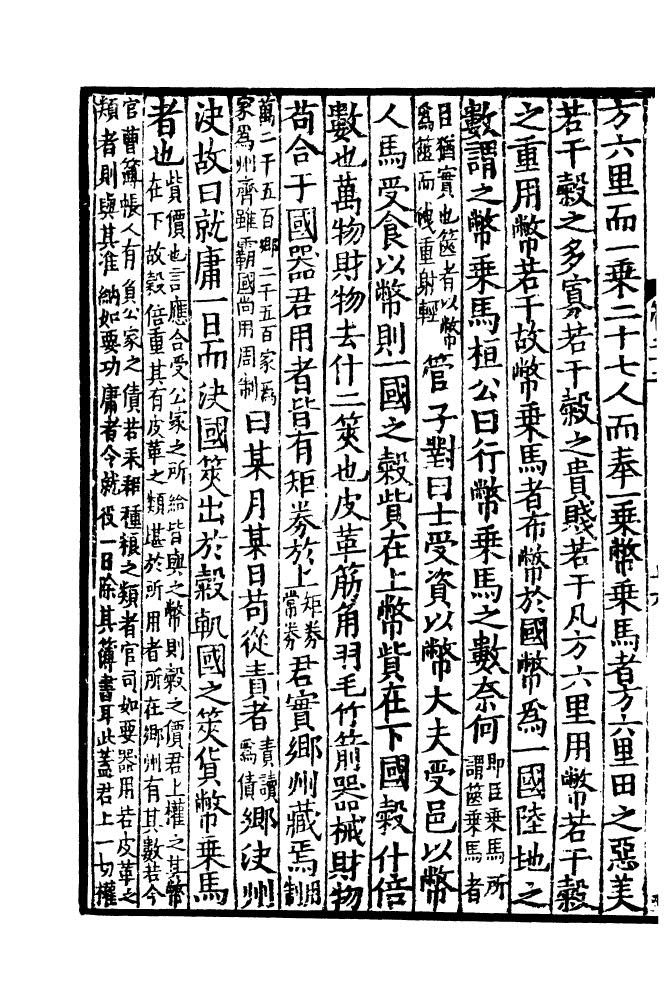 方六里而一乘二十七人而奉一乘幣乘馬者方六里田之惡美
若干穀之多寡若干穀之貴賤若干凡方六里用幣若干穀
之重用幣若干故幣乘馬者布幣於國幣為一國陸地之
數謂之幣乘馬桓公曰行幣乘馬之數奈何即臣乘馬所謂篋乘馬者
臣猶實也篋者以幣為篋而洩重射輕管子對曰士受資以幣大夫受邑以幣
人馬受食以幣則一國之穀貲在上幣貲在下國穀什倍
數也萬物財物去什二筴也皮革筋角羽毛竹箭器械財物
苟合于國器君用者皆有矩券於上矩券常券君實鄉州藏焉周制
萬二千五百鄉二千五百家為家為州齊雖霸國尚用周制曰某月某日苟從責者責讀為債鄉決州
決故曰就庸一日而決國筴出於穀軌國之筴貨幣乘馬
者也貲價也言應合受公家之所給皆與之幣則穀之價君上權之其幣在下故穀倍重其有皮革之類堪於所用者所在鄉州有其數若今
官曹簿帳人有負公家之債若耒耜種糧之類者官司如要器用若皮革之類者則與其准納如要功庸者今就役一日除其簿書耳此蓋君上一切權